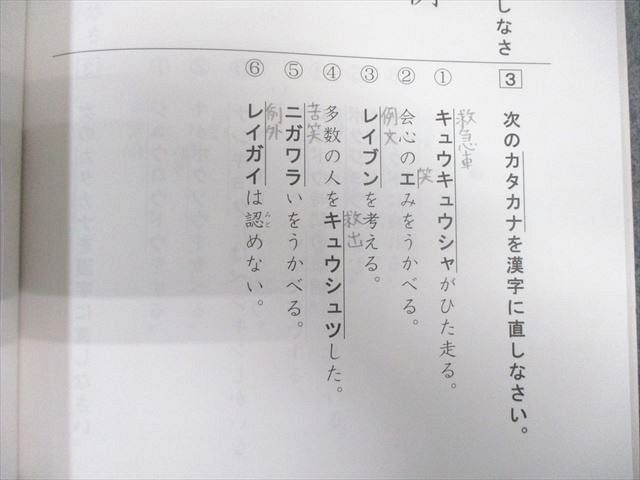 しなさ
例
3 次のカタカナを漢字に直しなさい。
① キュウキュウシャがひた走る。
救急車
② 会心のエみをうかべる。
笑
③ レイブンを考える。
例文
④ 多数の人をキュウシュツした。
救出
⑤ ニガワラいをうかべる。
苦笑
⑥ レイガイは認めない。
みと
例外